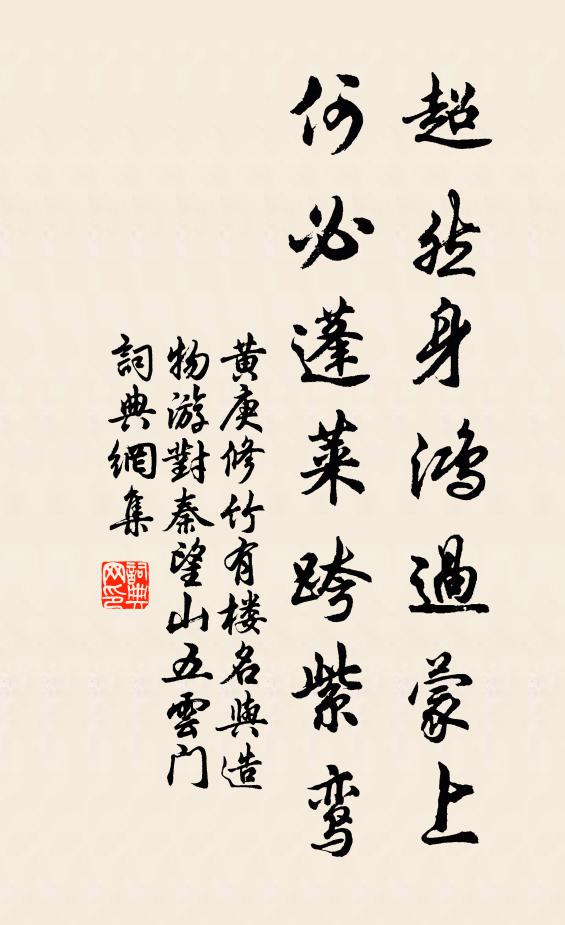 超然身鸿過蒙上
何必蓬萊跨紫鸾
黄庚修竹有楼名與造
物游對秦望山五雲门
詞典網集
詞典
网印